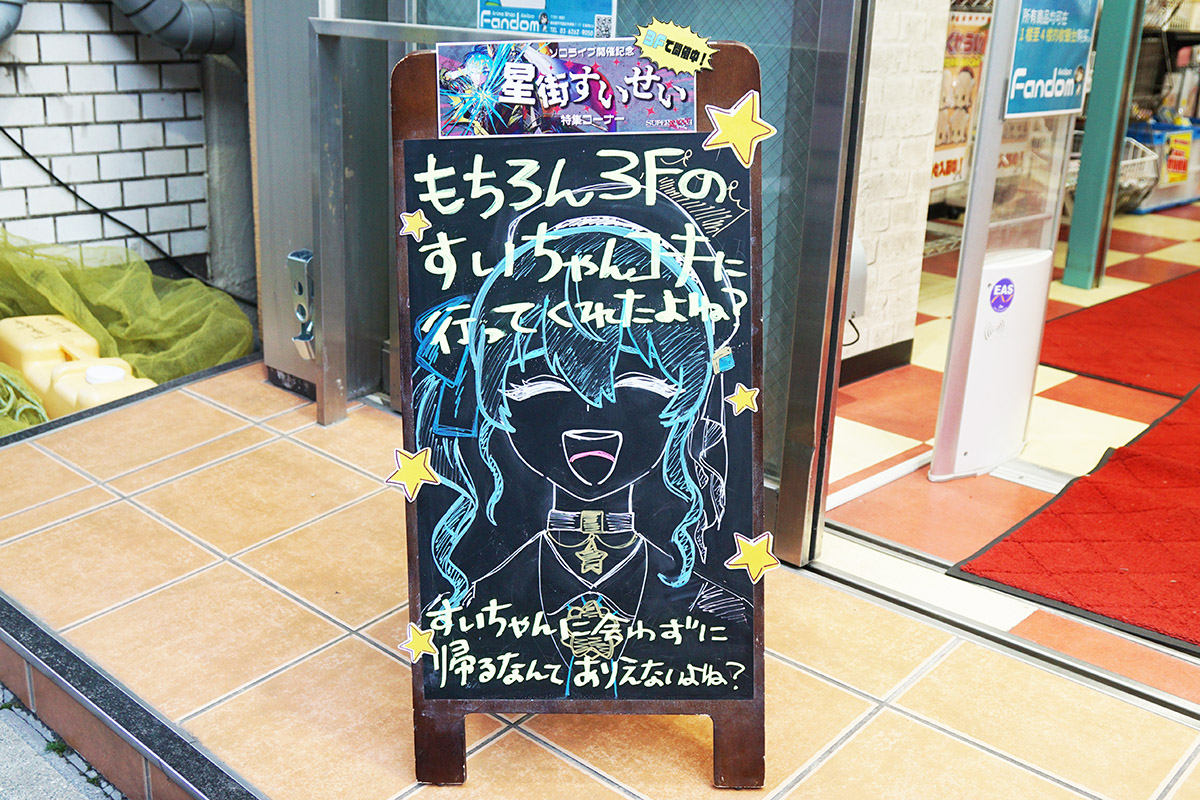 Anime Shop Akihabara
Fandom
TEL 03 6262-9050
ソロライブ開催記念
3Fで開催中!
星街すいせい
特集コーナー
SUPERNOVA
もちろん3Fの
すいちゃんコーナーに
行ってくれたよね?
すいちゃんに会わずに
帰るなんてありえないよね?
所有商品均可在
1楼至4楼的收银台购买
Fandom
EAS